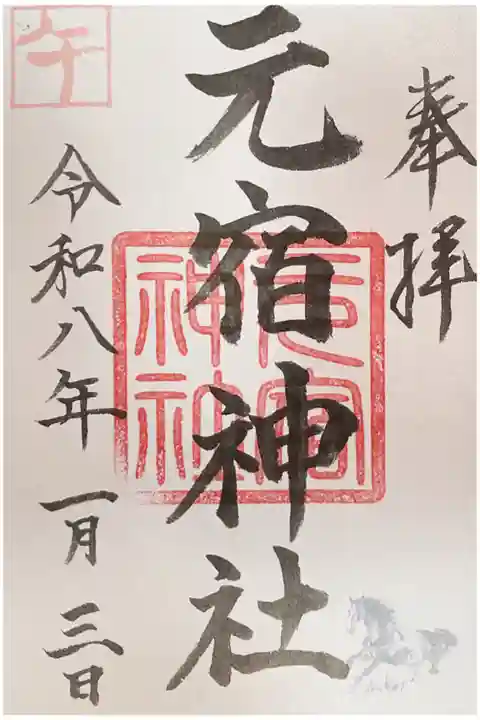 奉拝
元宿神社
元宿
神社
令和八年一月三日
午